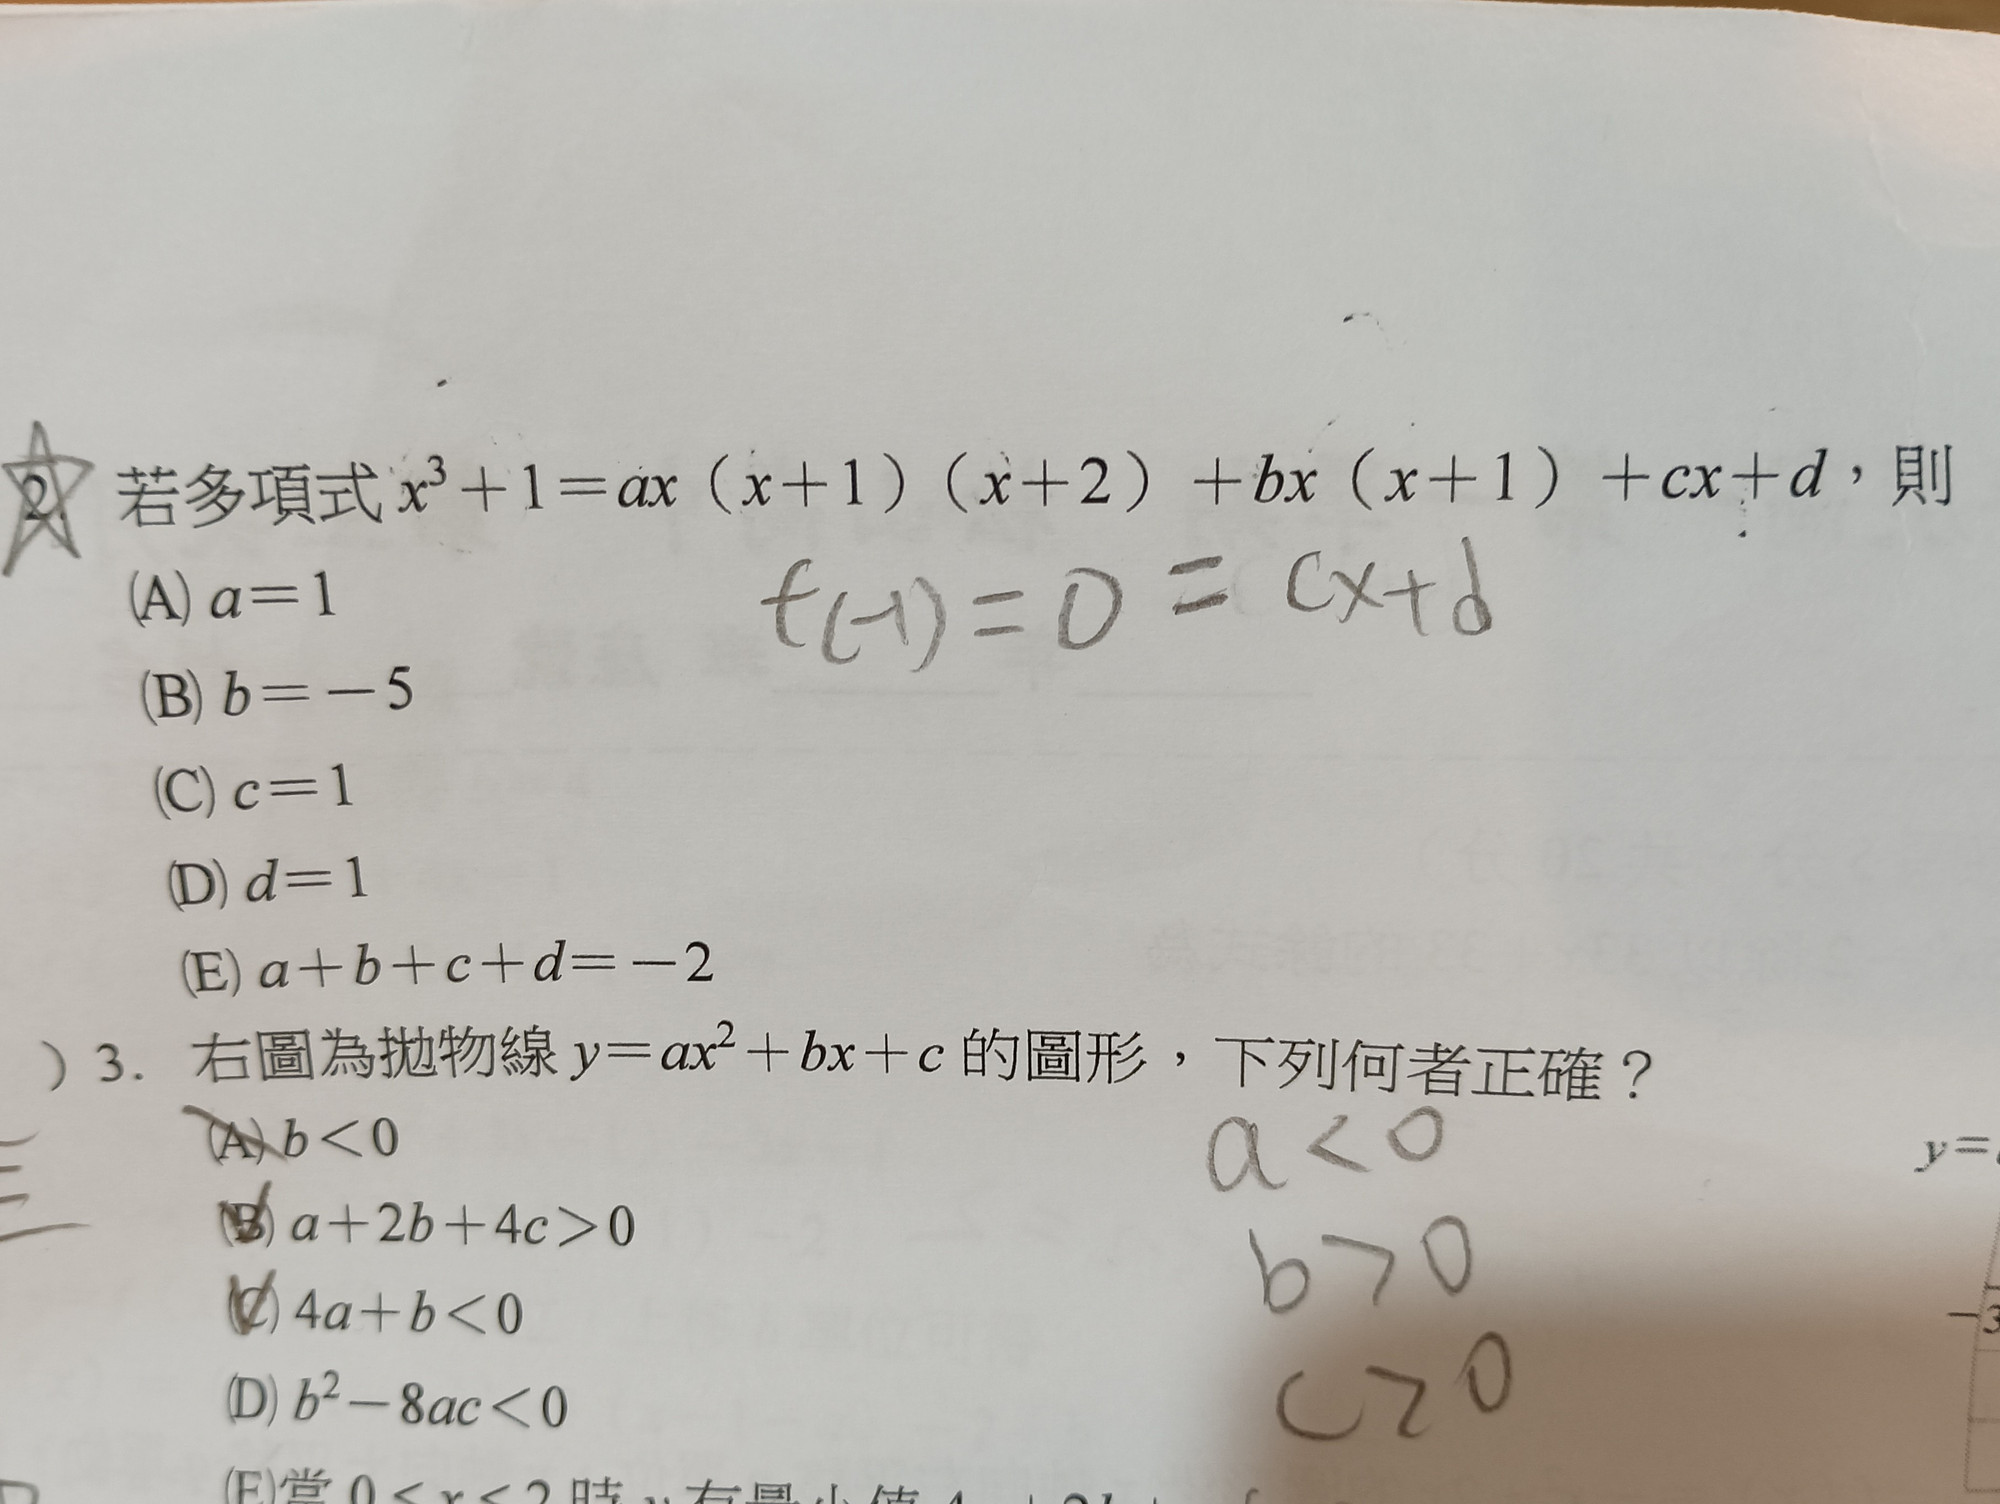 2. 若多項式 x³+1=ax(x+1)(x+2)+bx(x+1)+cx+d，則
f(-1)=0=cx+d
(A) a=1
(B) b=-5
(C) c=1
(D) d=1
(E) a+b+c+d=-2
) 3. 右圖為拋物線 y=ax²+bx+c 的圖形，下列何者正確？
(A) b<0
a<0
y=
(B) a+2b+4c>0
b>0
(C) 4a+b<0
-3
c>0
(D) b²-8ac<0
(E)當 0<x<2 時